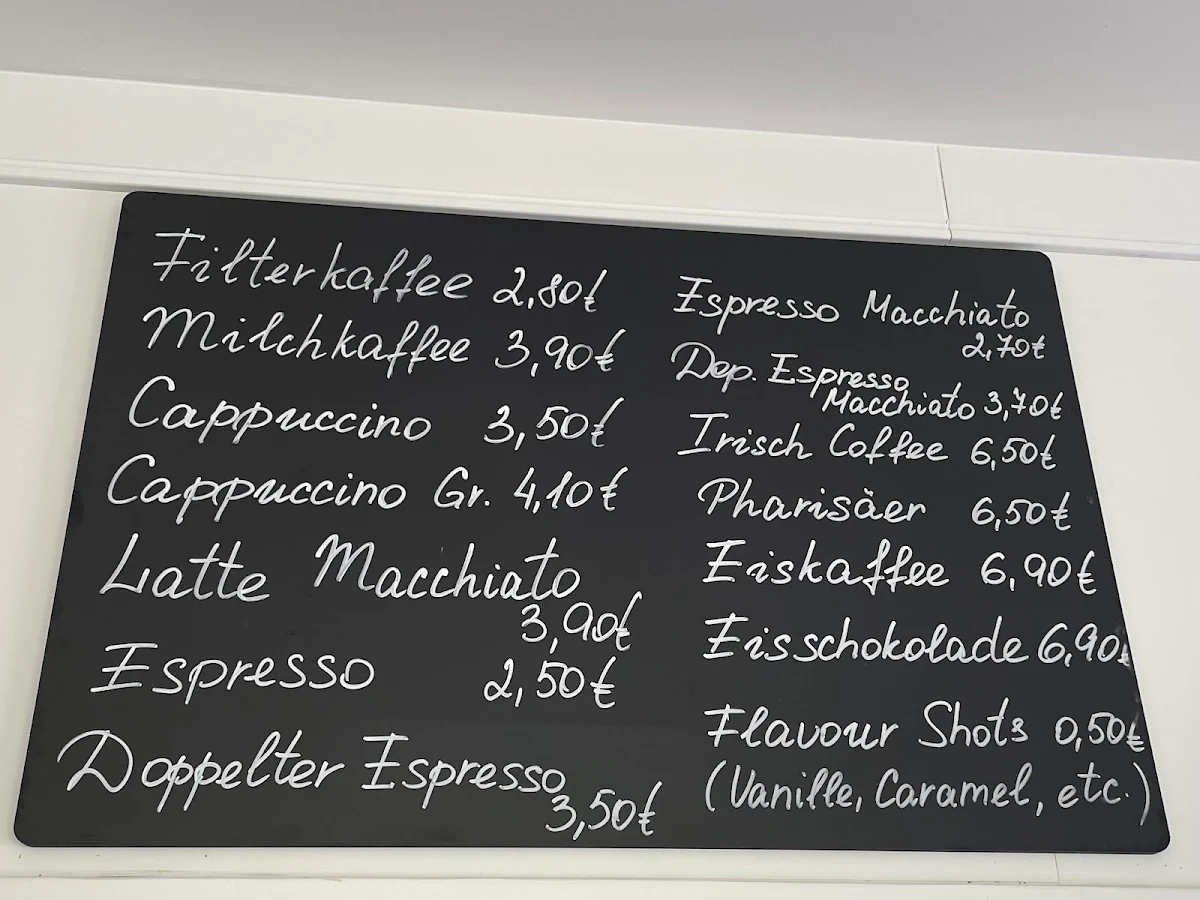 Filterkaffee 2,80€
Milchkaffee 3,90€
Cappuccino 3,50€
Cappuccino Gr. 4,10€
Latte Macchiato
3,90€
Espresso 2,50€
Doppelter Espresso
3,50€
Espresso Macchiato
2,70€
Dop. Espresso
Macchiato 3,70€
Irisch Coffee 6,50€
Pharisäer 6,50€
Eiskaffee 6,90€
Eisschokolade 6,90€
Flavour Shots 0,50€
(Vanille, Caramel, etc.)